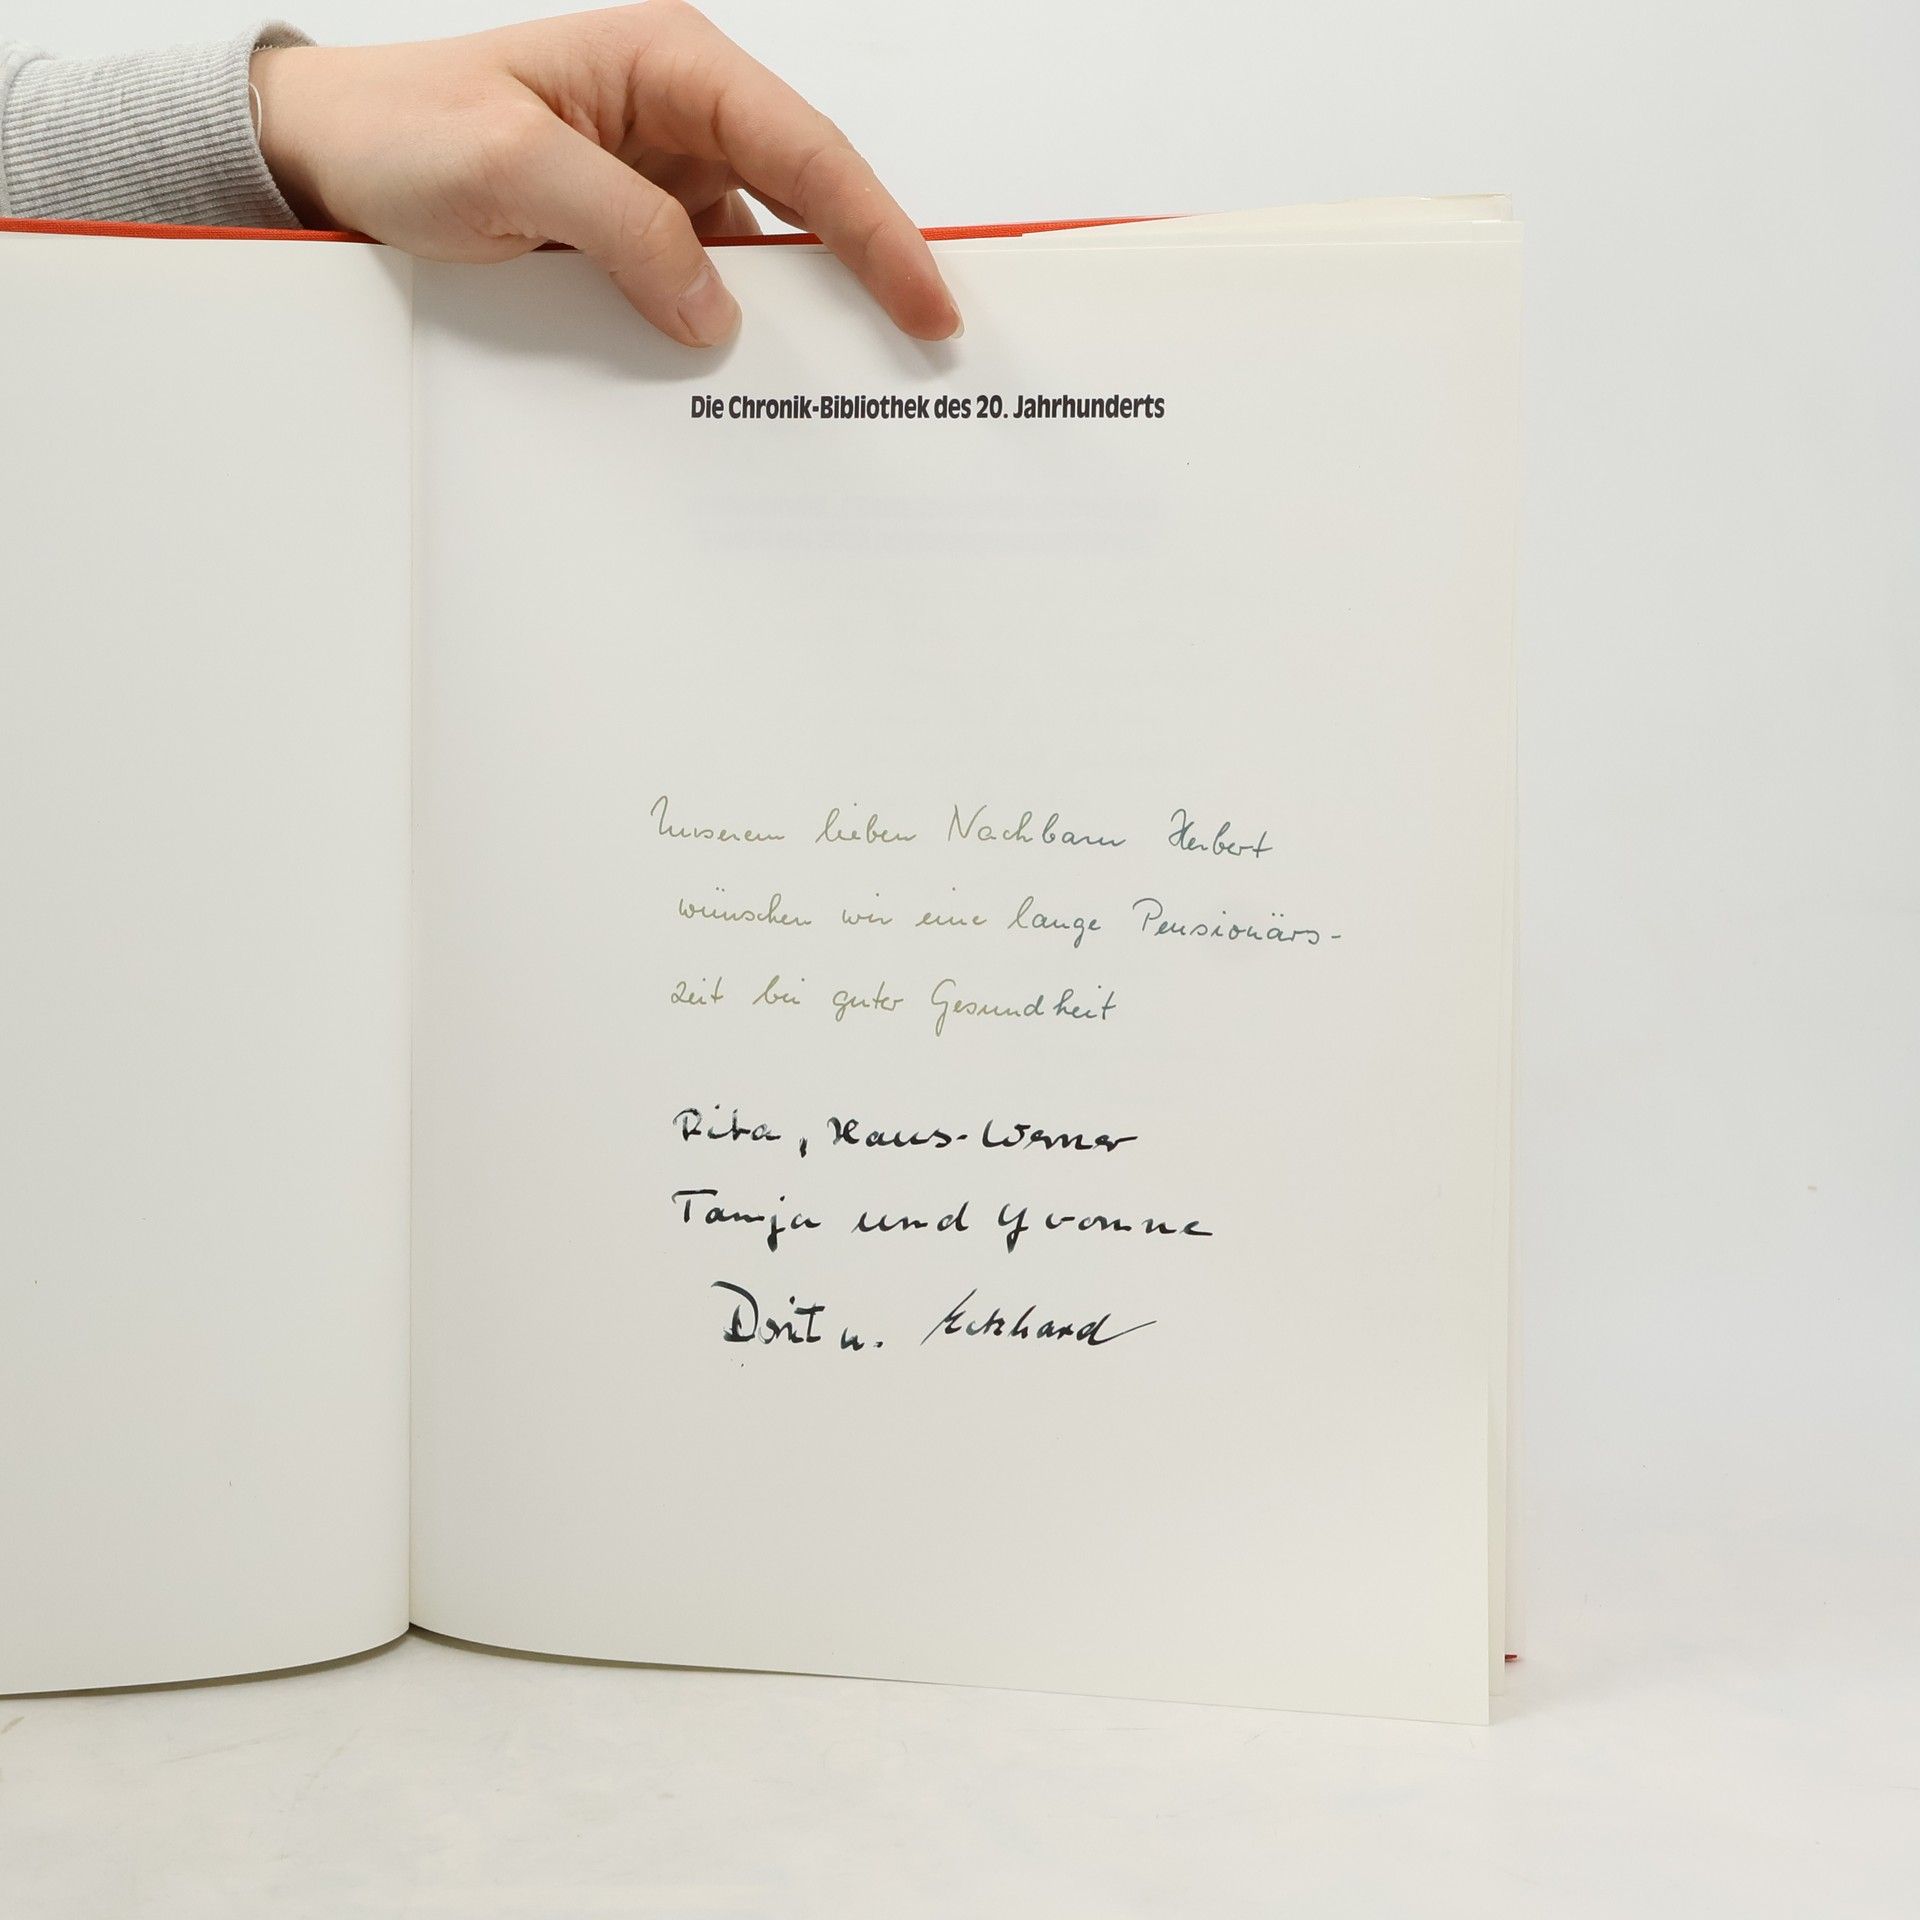 Die Chronik-Bibliothek des 20. Jahrhunderts
Unserem lieben Nachbarn Herbert
wünschen wir eine lange Pensionärs-
zeit bei guter Gesundheit
Rita, Hans-Werner
Tanja und Yvonne
Dorit u. Eckhard